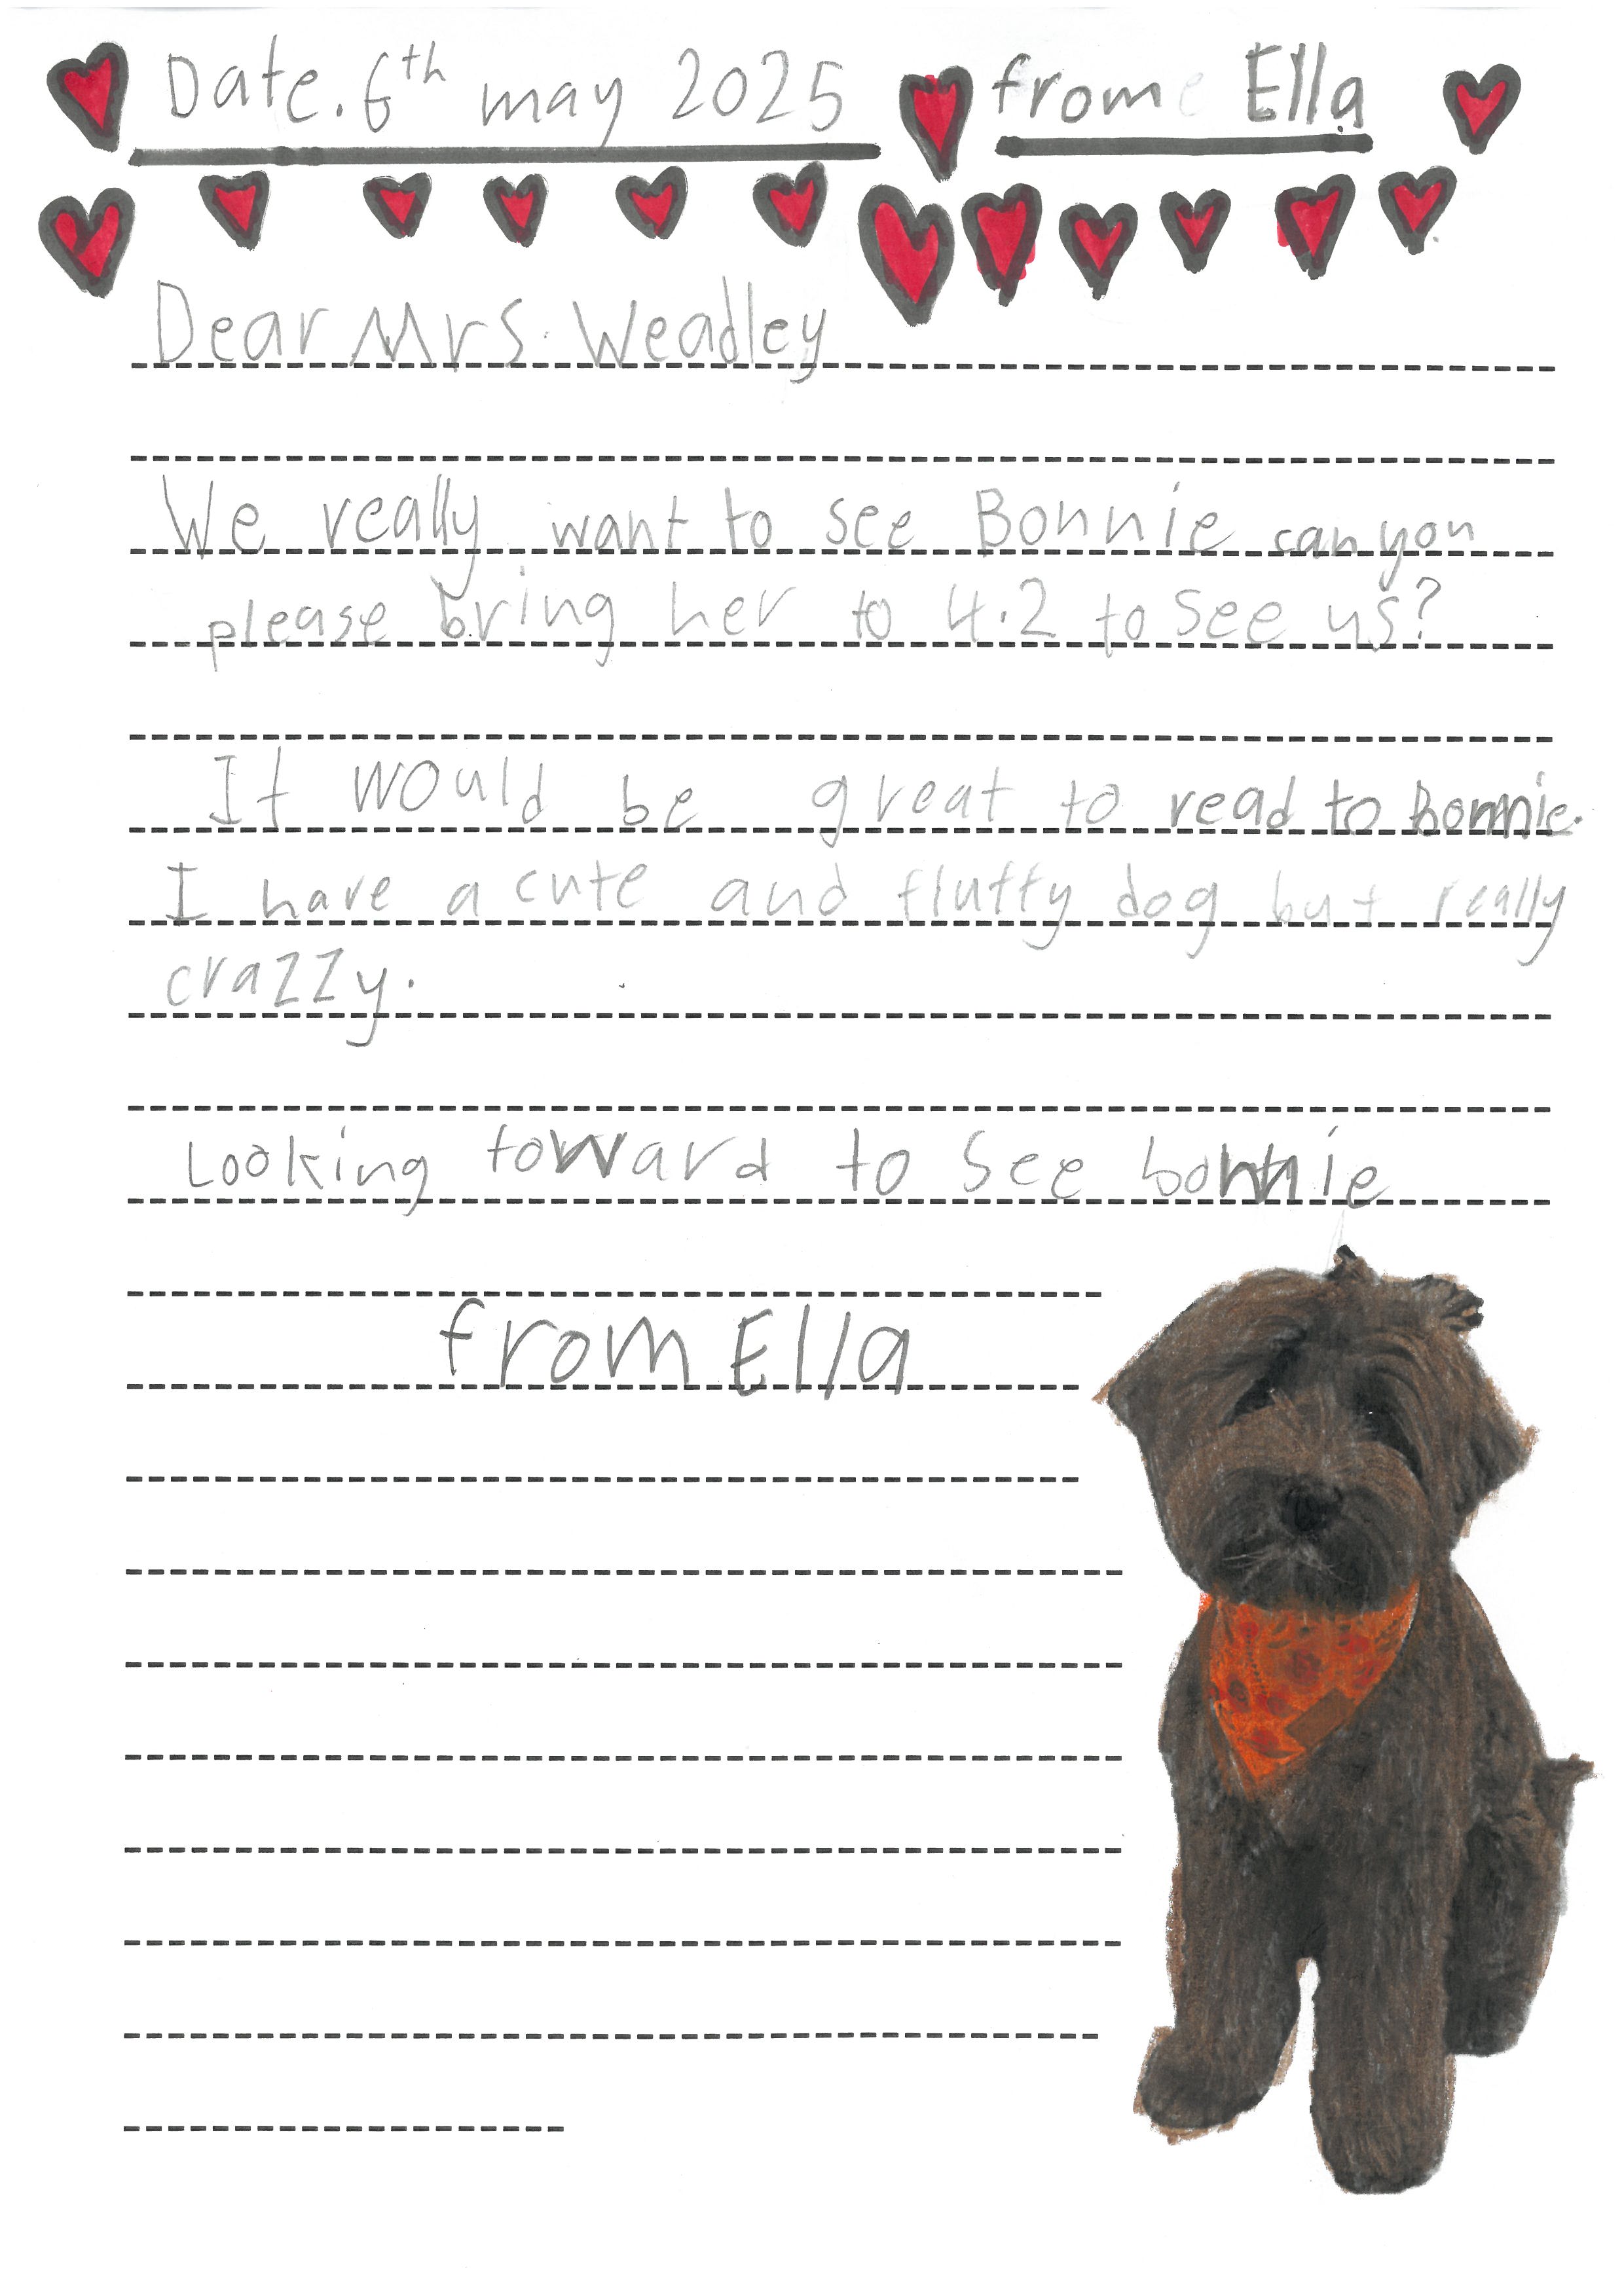 Date. 6th may 2025 from Ella
Dear Mrs. Weadley
We really want to see Bonnie can you
please bring her to 4.2 to see us?
It would be great to read to Bonnie.
I have a cute and fluffy dog but really
crazzy.
Looking toward to see bonnie
from Ella